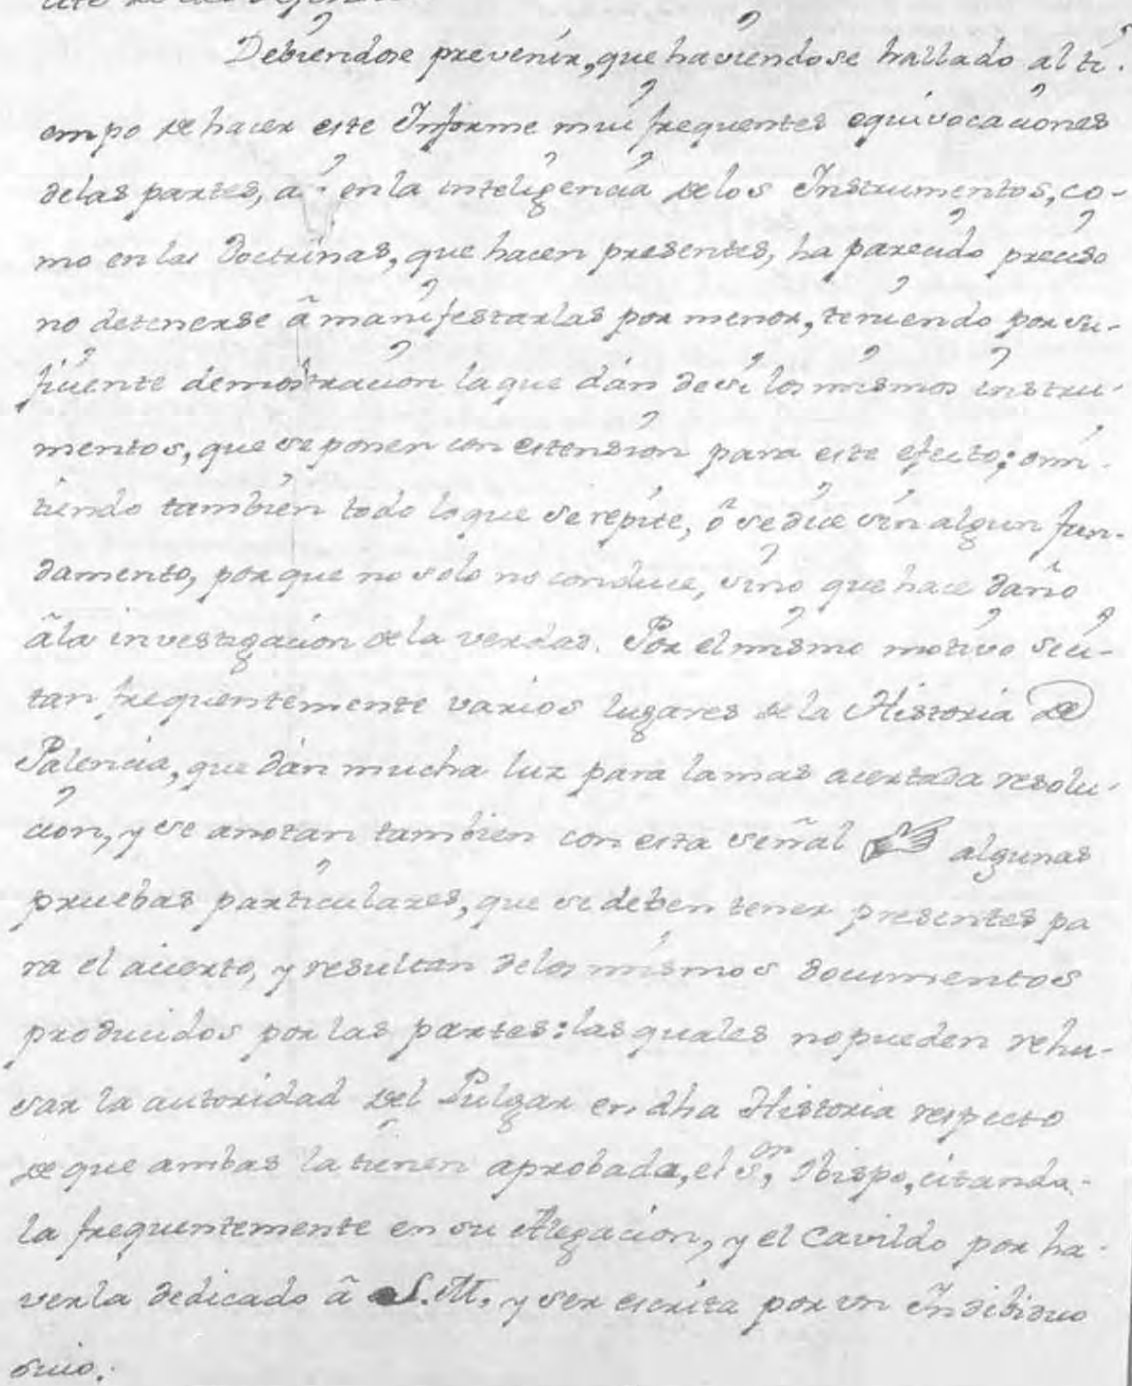 Debiendose prevenir, que haviendose hallado al ti-
empo de hacer este Informe mui frequentes equivocaciones
delas partes, a enla inteligencia delos Instrumentos, co-
mo en las Doctrinas, que hacen presentes, ha parecido preciso
no detenerse â manifestarlas por menor, teniendo por su-
ficiente demostracion la que dán de sí los mismos instru-
mentos, que se ponen con estension para este efecto; omi-
tiendo tambien todo lo que se repite, ô se dice sin algun fun-
damento, porque no solo no conduce, sino que hace daño
âla investigacion de la verdad. Por el mismo motivo se ci-
tan frequentemente varios lugares de la Historia de
Palencia, que dán mucha luz para la mas acertada resolu-
cion, y se anotan tambien con esta señal ☞ algunas
pruebas particulares, que se deben tener presentes pa
ra el acierto, y resultan delos mismos documentos
producidos por las partes: las quales no pueden rehu-
sar la autoridad del Pulgar en dha Historia respecto
de que ambas la tienen aprobada, el S.or Obispo, citando-
la frequentemente en su Alegacion, y el Cavildo por ha-
verla dedicado â S.M. y ser escrita por un Indibiduo
suio.